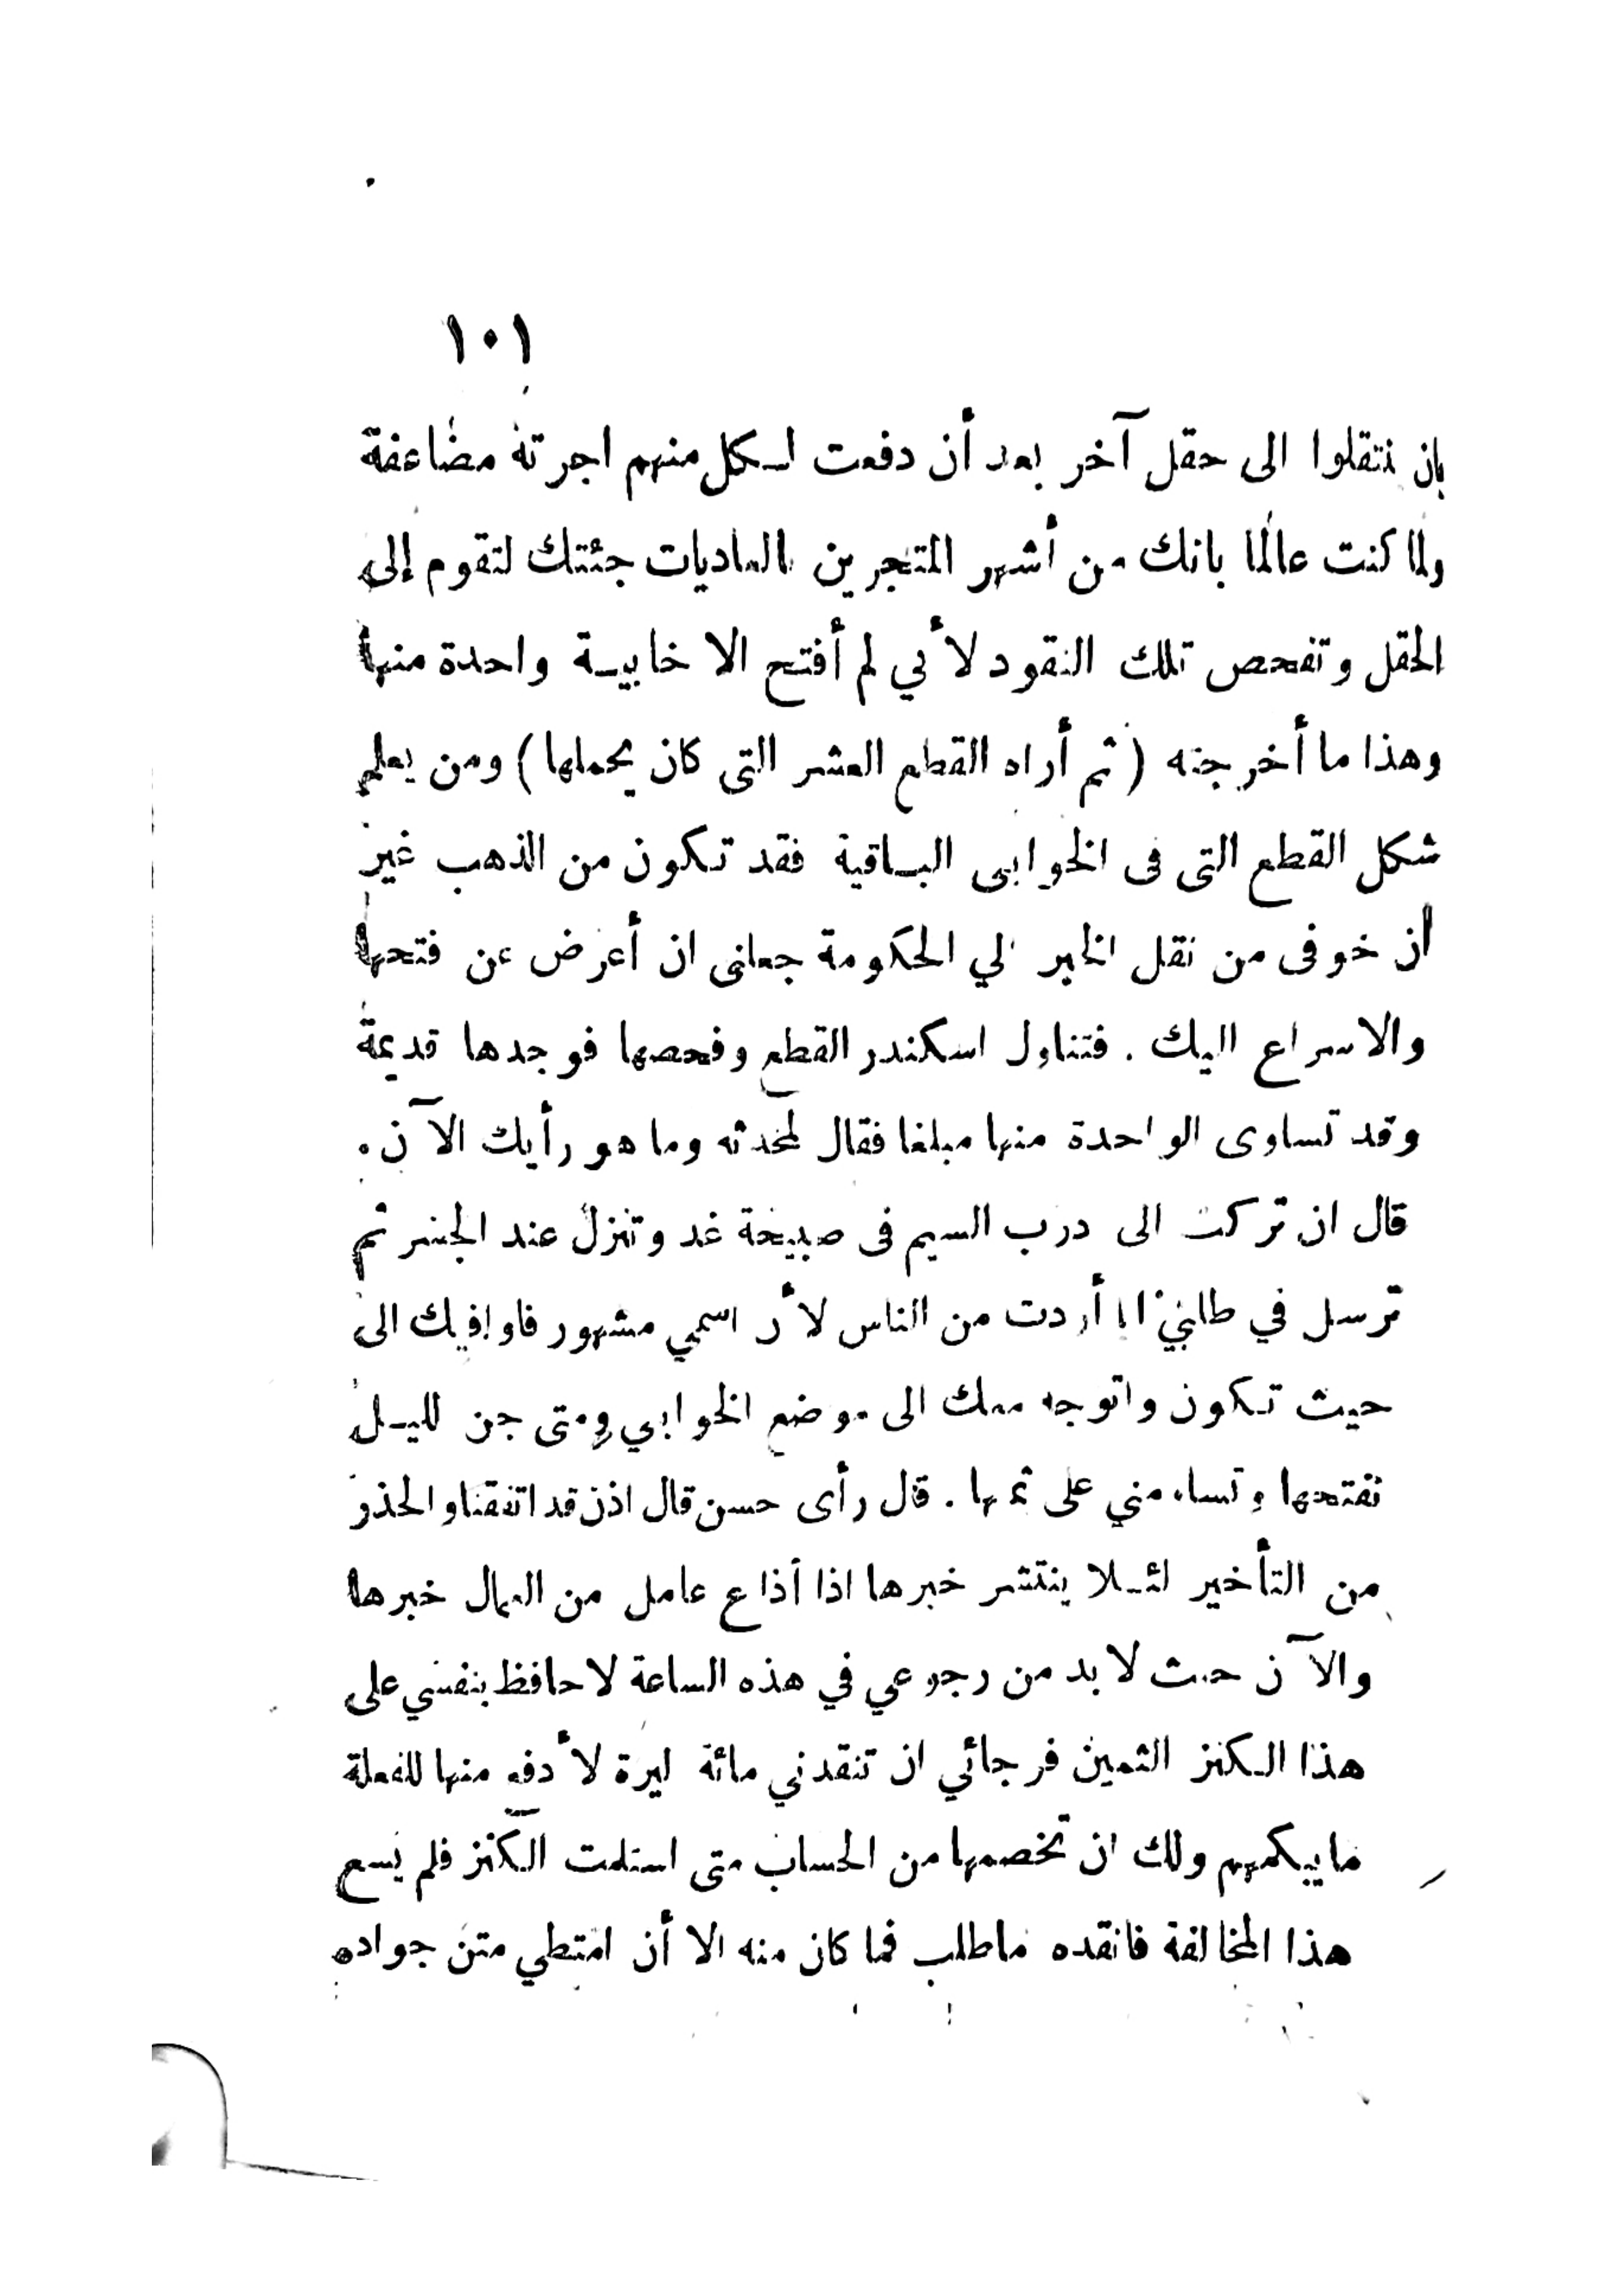 ١٠١
بان نتقلوا الى حقل آخر بعد أن دفعت لكل منهم اجرته مضاعفة
ولما كنت عالما بانك من أشهر المتجرين بالعاديات جئتك لتقوم إلى
الحقل وتفحص تلك النقود لأني لم أفتح الا خابية واحدة منها
وهذا ما أخرجته ( ثم أراه القطع العشر التى كان يحملها ) ومن يعلم
شكل القطع التى فى الخوابى الباقية فقد تكون من الذهب غير
أن خوفى من نقل الخبر الي الحكومة جعلنى ان أعرض عن فتحها
والاسراع اليك . فتناول اسكندر القطع وفحصها فوجدها قديمة
وقد تساوى الواحدة منها مبلغا فقال لمحدثه وما هو رأيك الآن .
قال ان تركت الى درب السيم فى صبيحة غد وتنزل عند الجسر ثم
ترسل في طلبي أردت من الناس لأن اسمي مشهور فاوافيك الى
حيث تكون واتوجه معك الى موضع الخوابي ومتى جن لليل
نفتحها وتساومني على ثمنها . قال رأى حسن قال اذن قد اتفقنا والحذر
من التأخير لئلا ينتشر خبرها اذا أذاع عامل من العمال خبرها
والآن حيث لا بد من رجوعي في هذه الساعة لاحافظ بنفسي على
هذا الكنز الثمين فرجائي ان تنقدني مائة ليرة لأدفع منها للفعلة
ما يبكمهم ولك ان تخصمها من الحساب متى استلمت الكنز فلم يسع
هذا المخالفة فانقده ماطلب فما كان منه الا أن امتطي متن جواده